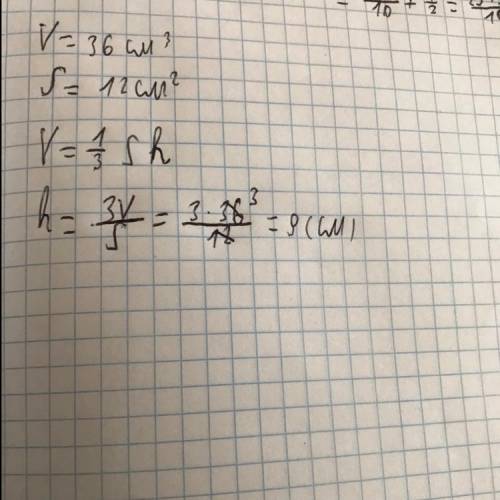 V = 36 см³
S = 12 см²
V = 1/3 S h
h = 3V/S = 3·36³/12 = 9 (см)